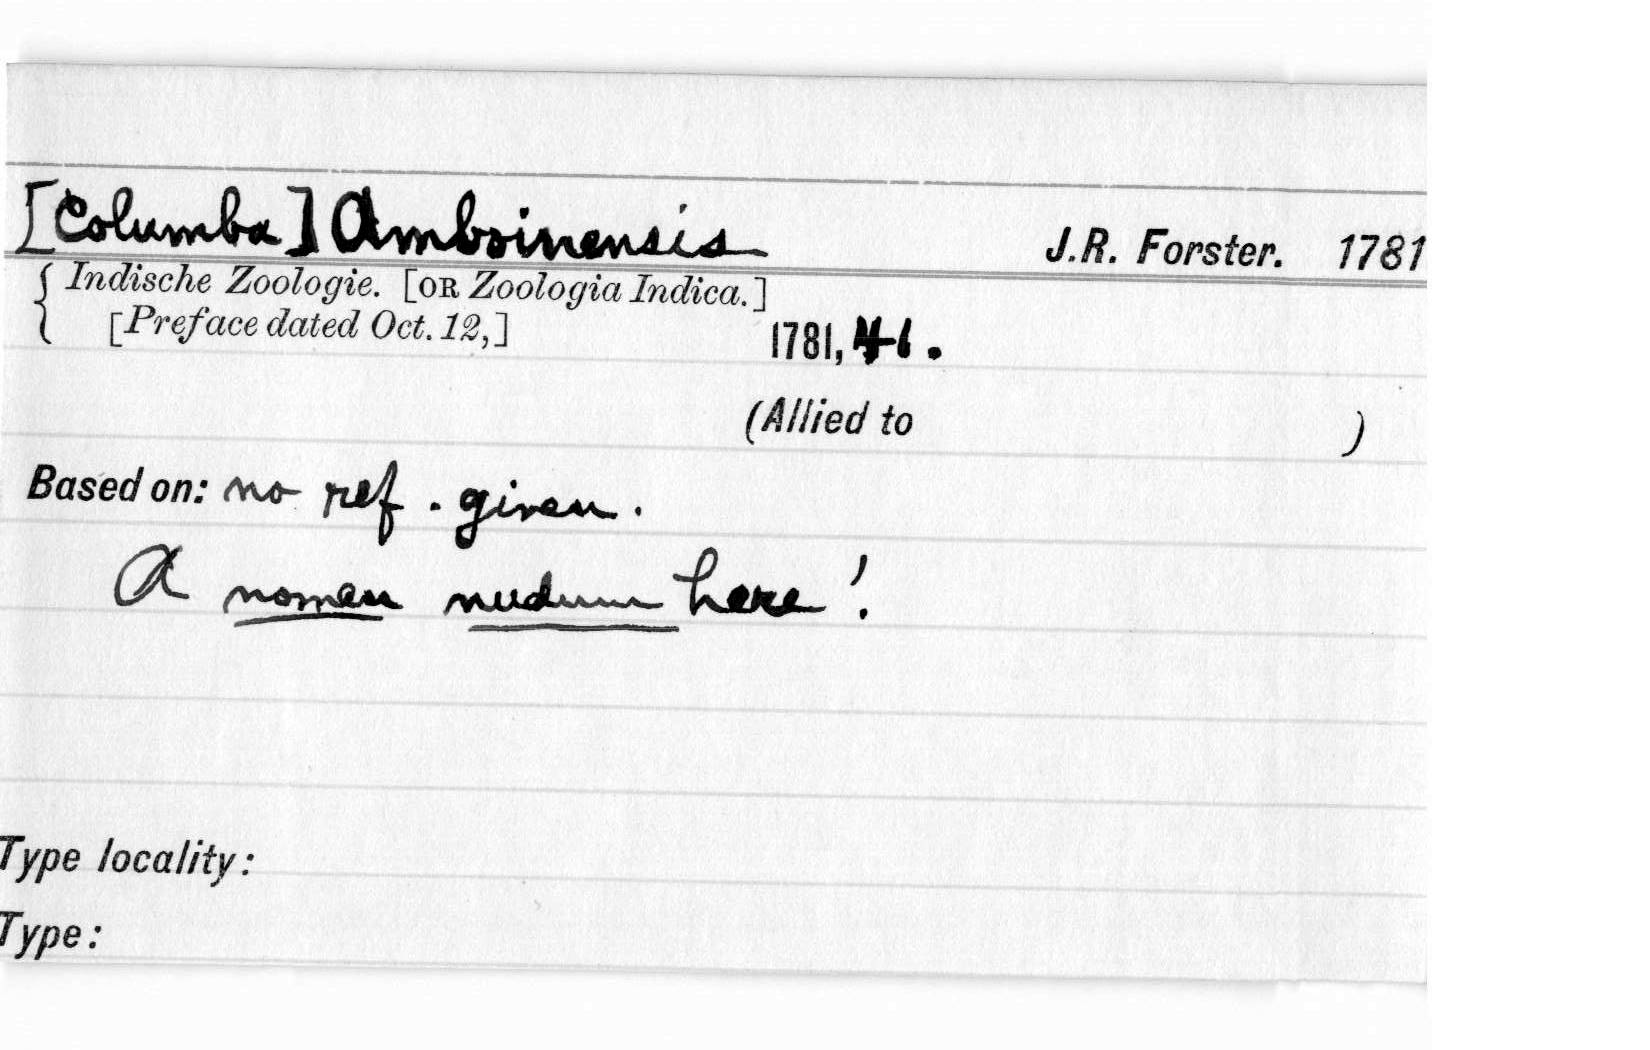 [Columba] Amboinensis J.R. Forster. 1781
{ Indische Zoologie. [OR Zoologia Indica.]
[Preface dated Oct. 12,] 1781, 41.
(Allied to )
Based on: no ref. given.
A nomen nudum here!
Type locality:
Type: